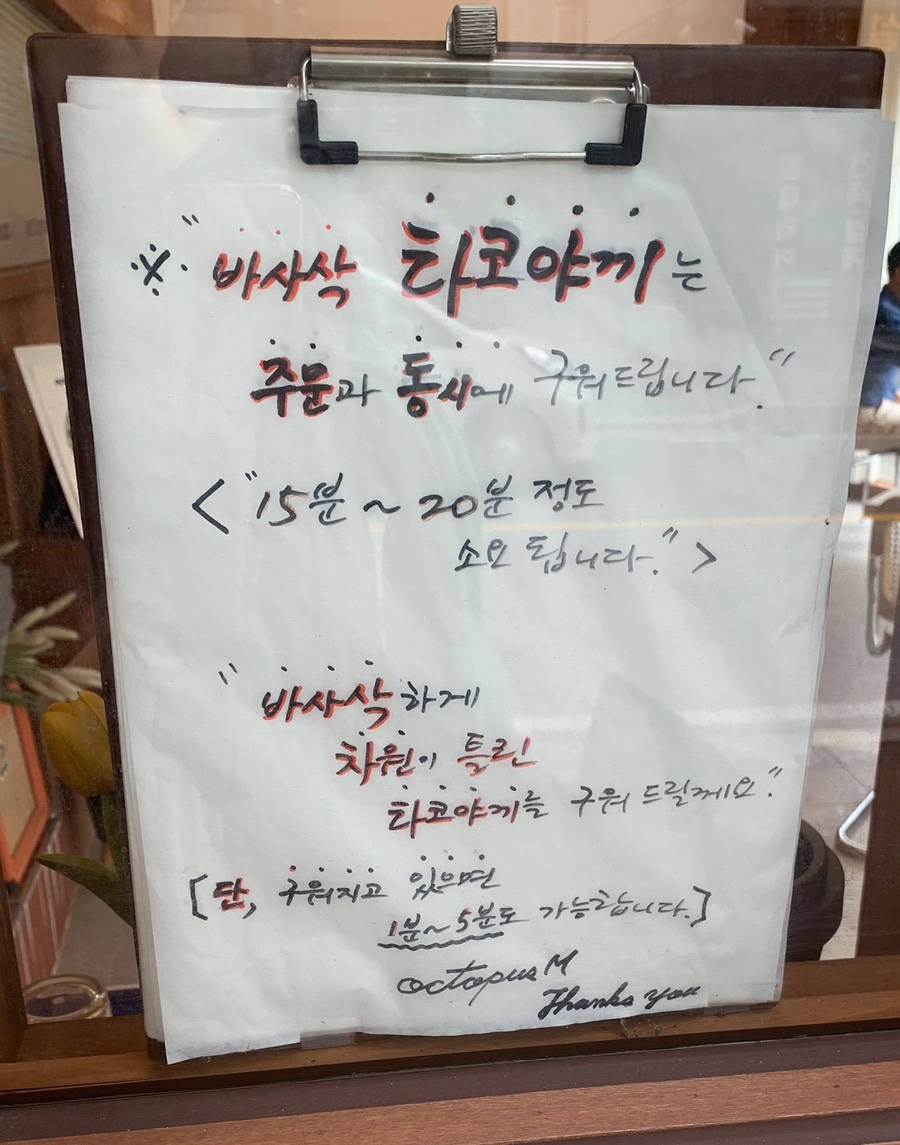 ※ "바사삭 타코야끼는
주문과 동시에 구워드립니다."
<"15분 ~ 20분 정도
소요 됩니다.">
"바사삭하게
차원이 틀린
타코야끼를 구워 드릴께요."
[단, 구워지고 있으면
1분~5분도 가능합니다.]
octopus M
Thanks you